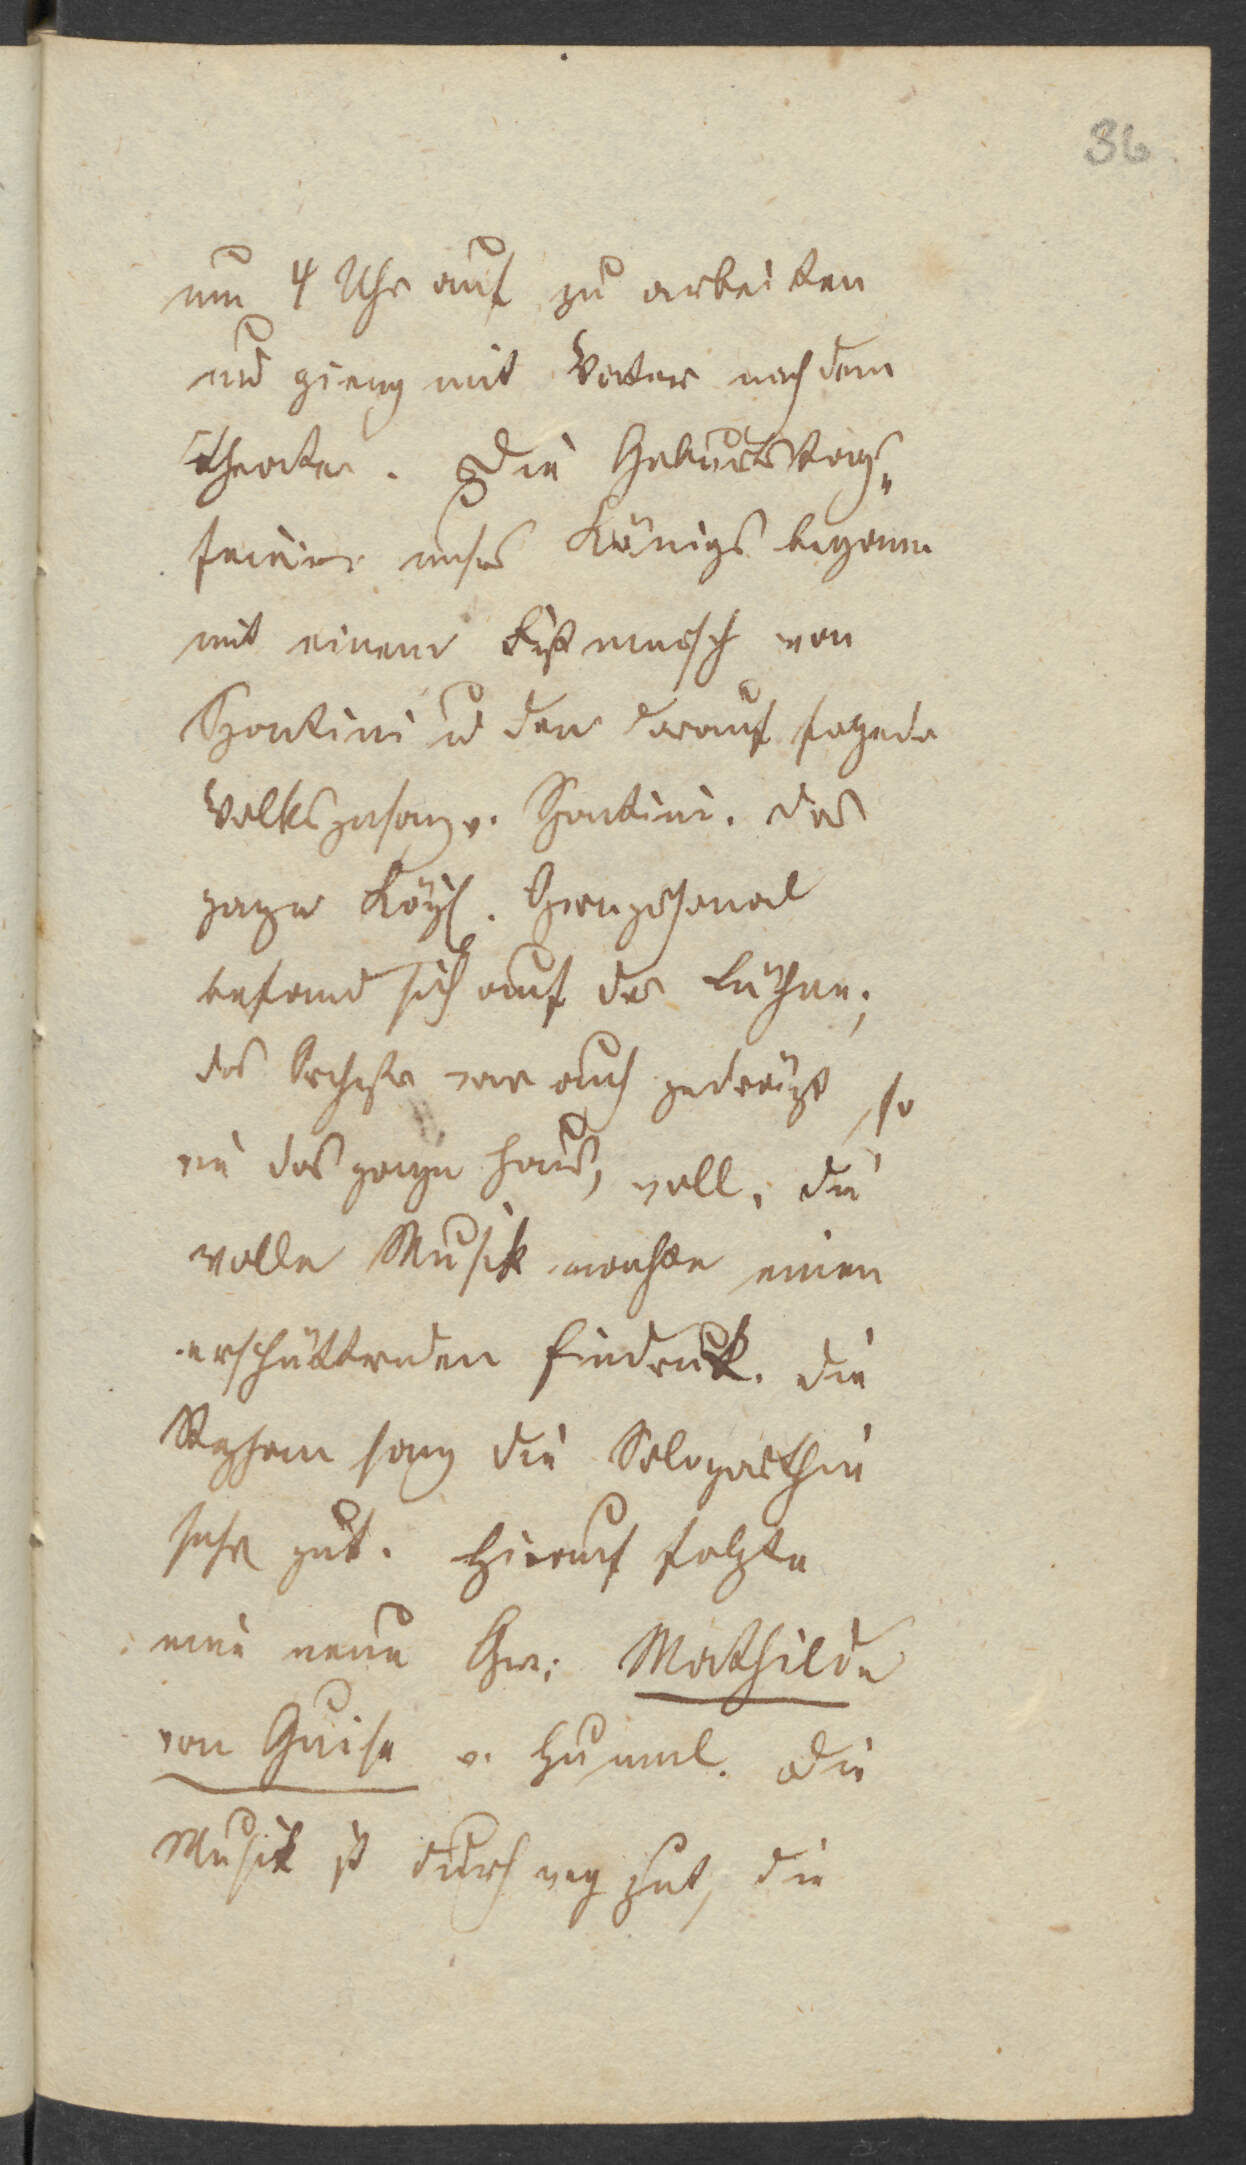 36
um 4 Uhr auf zu arbeiten
und gieng mit Vater nach dem
Theater. Die Geburtstags„
feier unsres Königs begann
mit einem Festmarsch von
Spontini u den darauf folgende
Volksgesang v. Spontini. Das
ganze Königl. Opernpersonal
befand sich auf der Bühne;
das Orchester war auch gedrängt, so
wie das ganze Haus, voll. Die
volle Musik machte einen
erschütternden Eindruck. Die
sang die Soloparthie
sehr gut. Hierauf folgte
eine neue Oper: Mathilde
von Guise v. Huml. Die
Musik ist durchweg gut, die